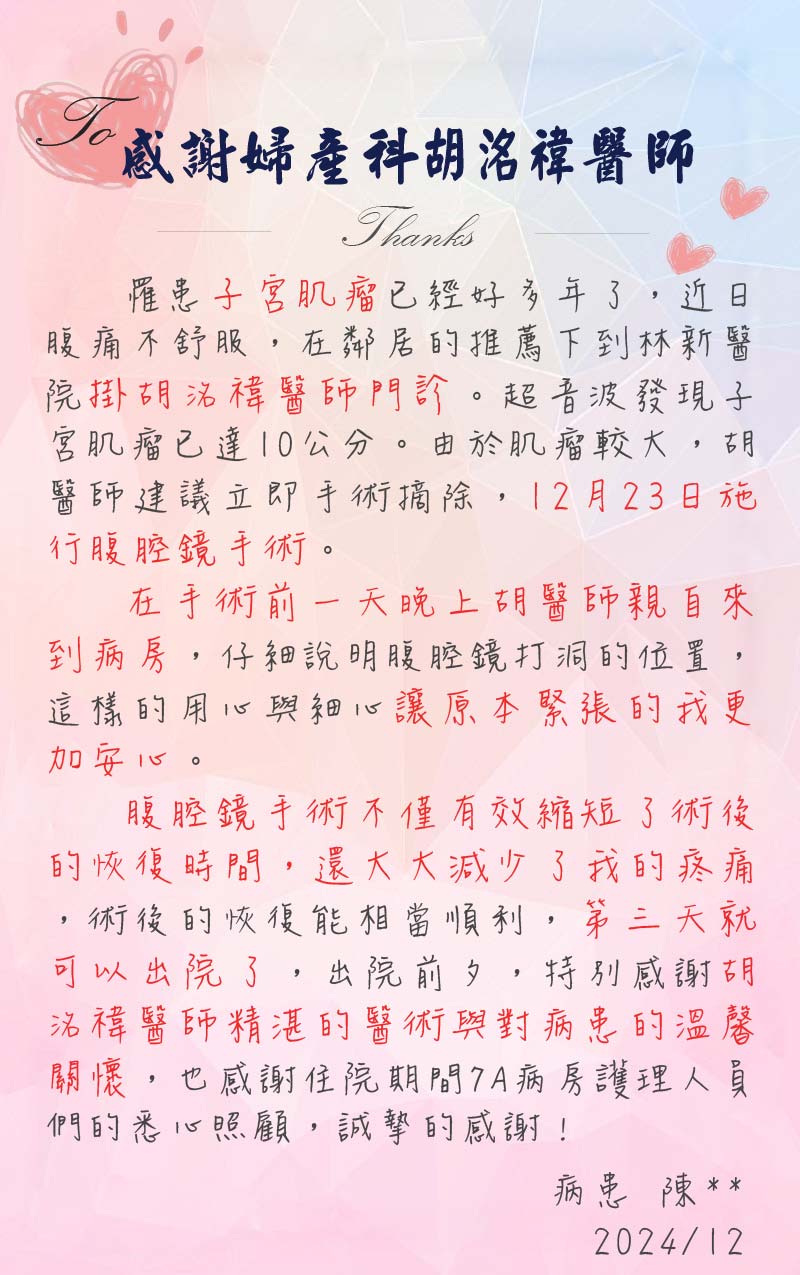 To
感謝婦產科胡洺禕醫師
Thanks
罹患子宮肌瘤已經好多年了，近日
腹痛不舒服，在鄰居的推薦下到林新醫
院掛胡洺禕醫師門診。超音波發現子
宮肌瘤已達10公分。由於肌瘤較大，胡
醫師建議立即手術摘除，12月23日施
行腹腔鏡手術。
在手術前一天晚上胡醫師親自來
到病房，仔細說明腹腔鏡打洞的位置，
這樣的用心與細心讓原本緊張的我更
加安心。
腹腔鏡手術不僅有效縮短了術後
的恢復時間，還大大減少了我的疼痛
，術後的恢復能相當順利，第三天就
可以出院了，出院前夕，特別感謝胡
洺禕醫師精湛的醫術與對病患的溫馨
關懷，也感謝住院期間7A病房護理人員
們的悉心照顧，誠摯的感謝！
病患 陳**
2024/12